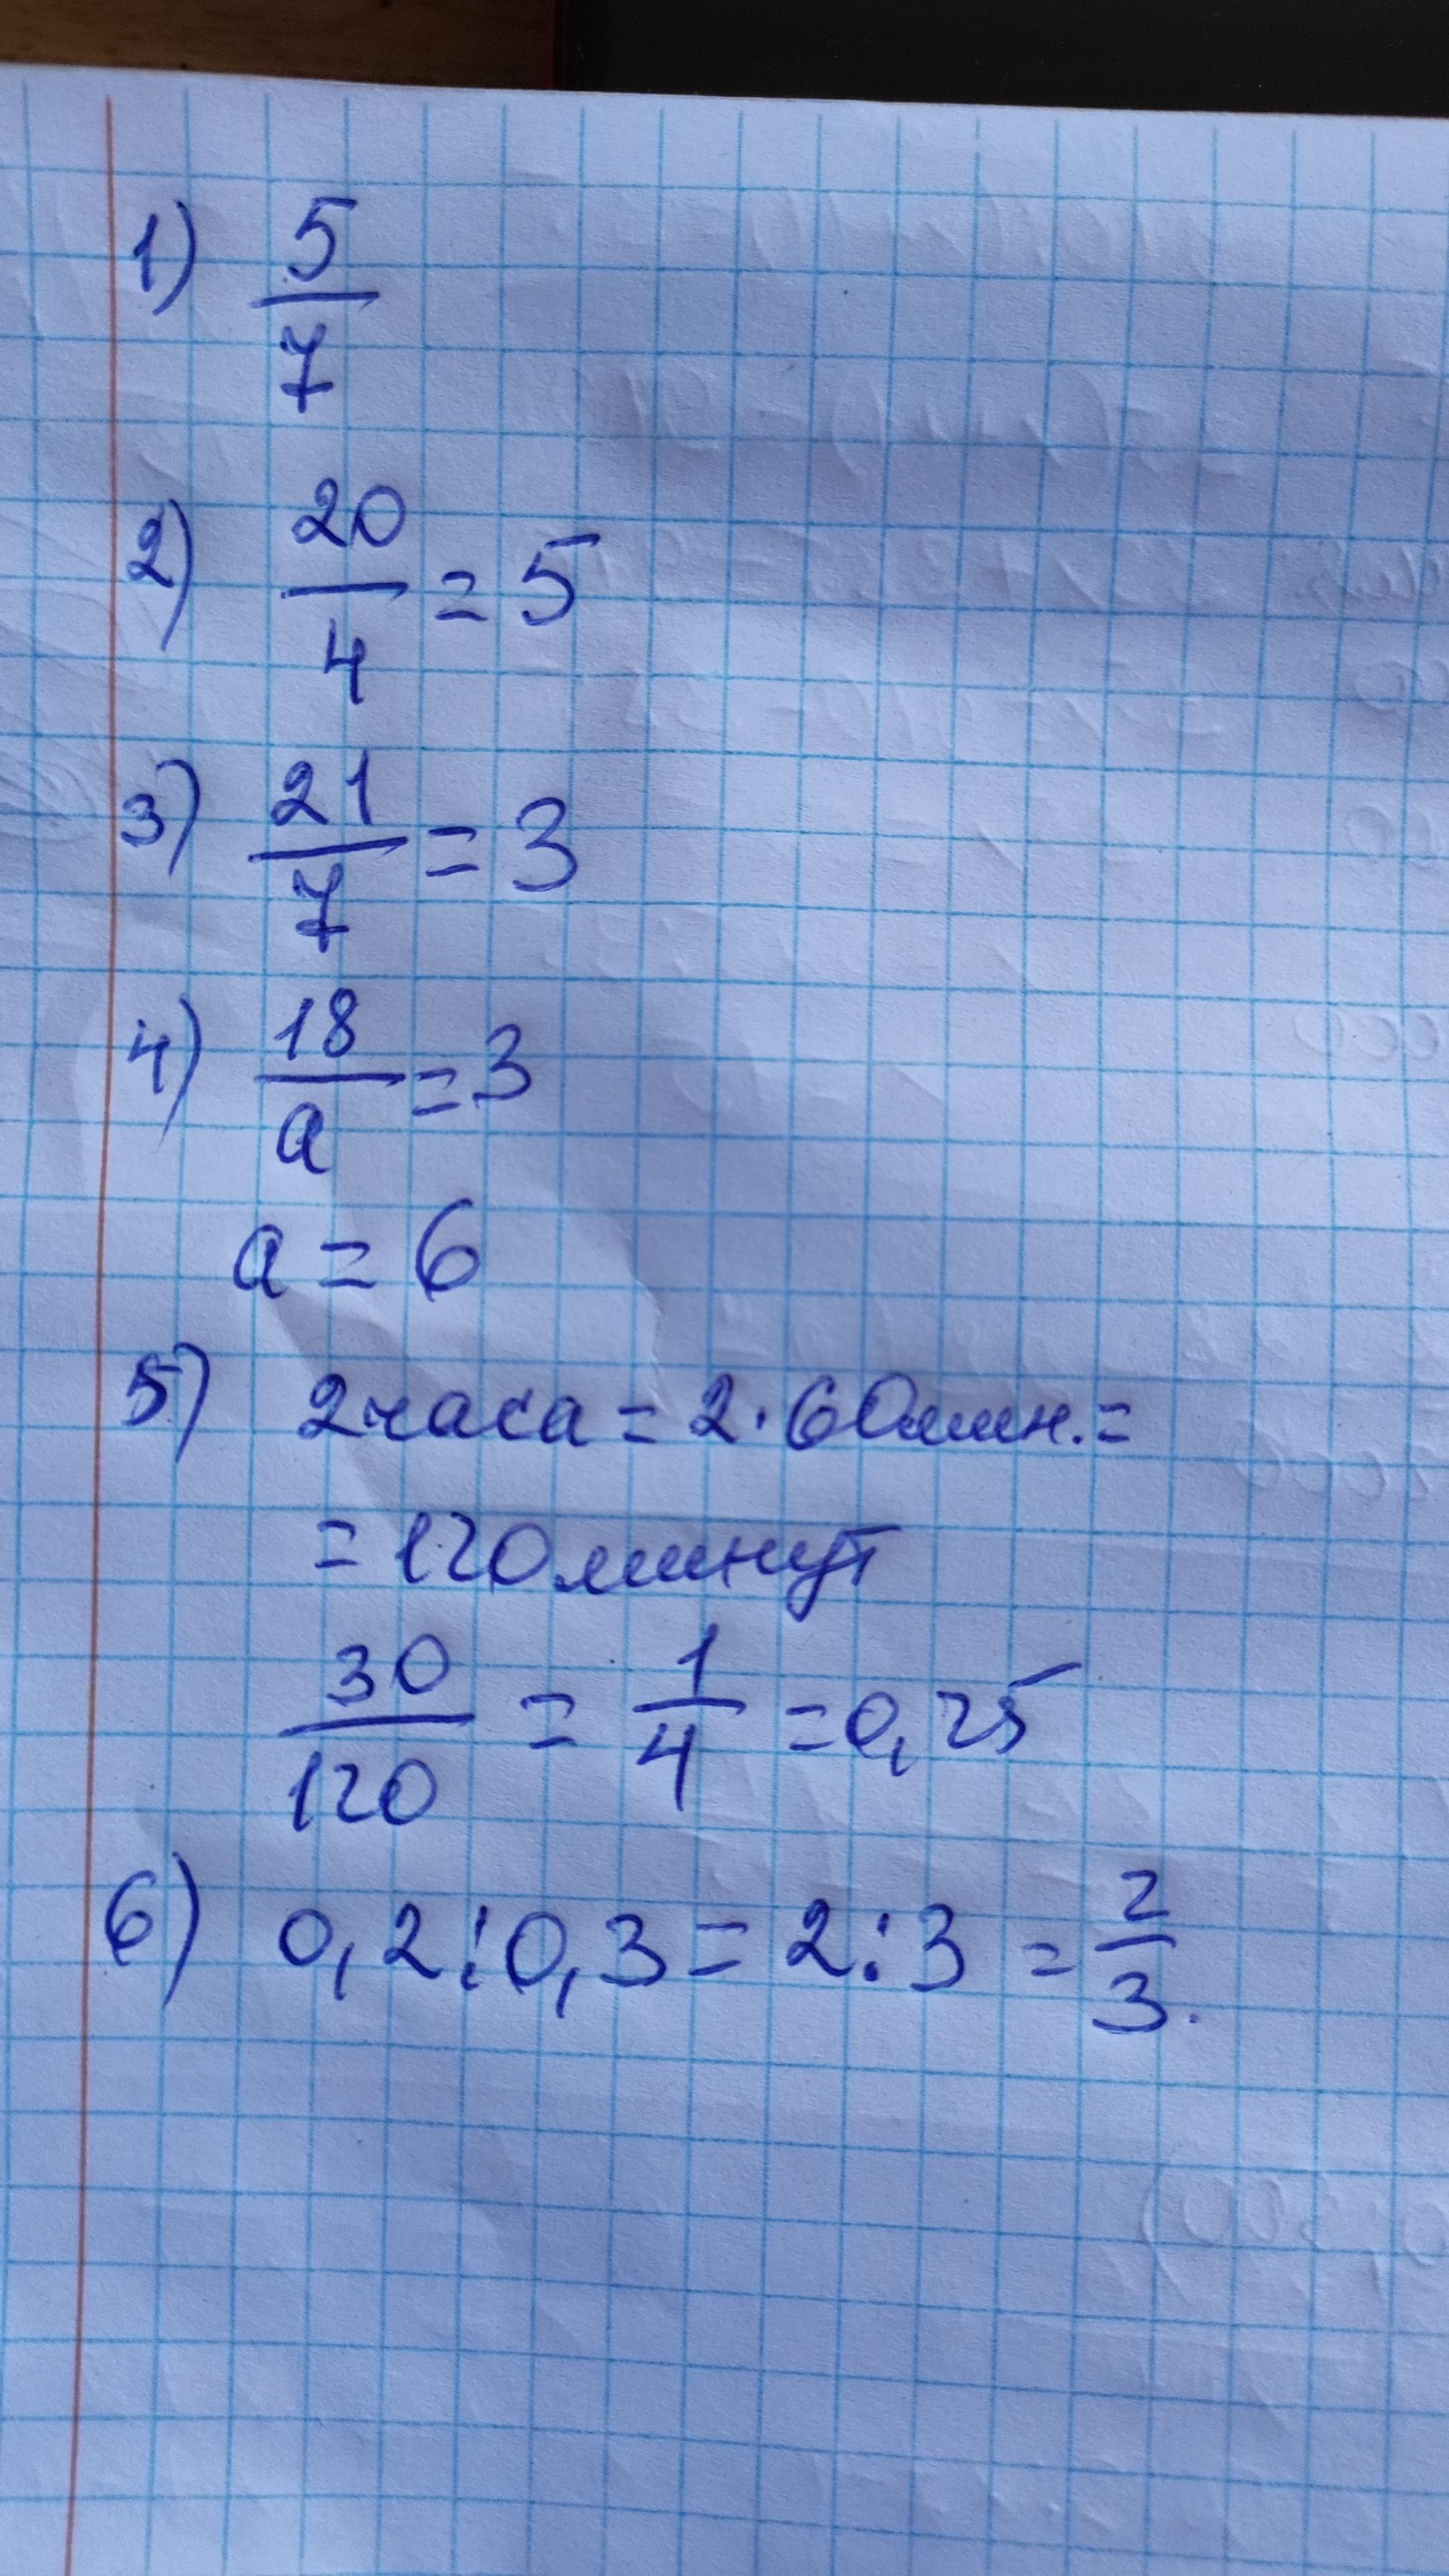 1) 5/7
2) 20/4 = 5
3) 21/7 = 3
4) 18/a = 3
a = 6
5) 2 часа = 2 · 60 мин. =
= 120 минут
30/120 = 1/4 = 0,25
6) 0,2 : 0,3 = 2 : 3 = 2/3.